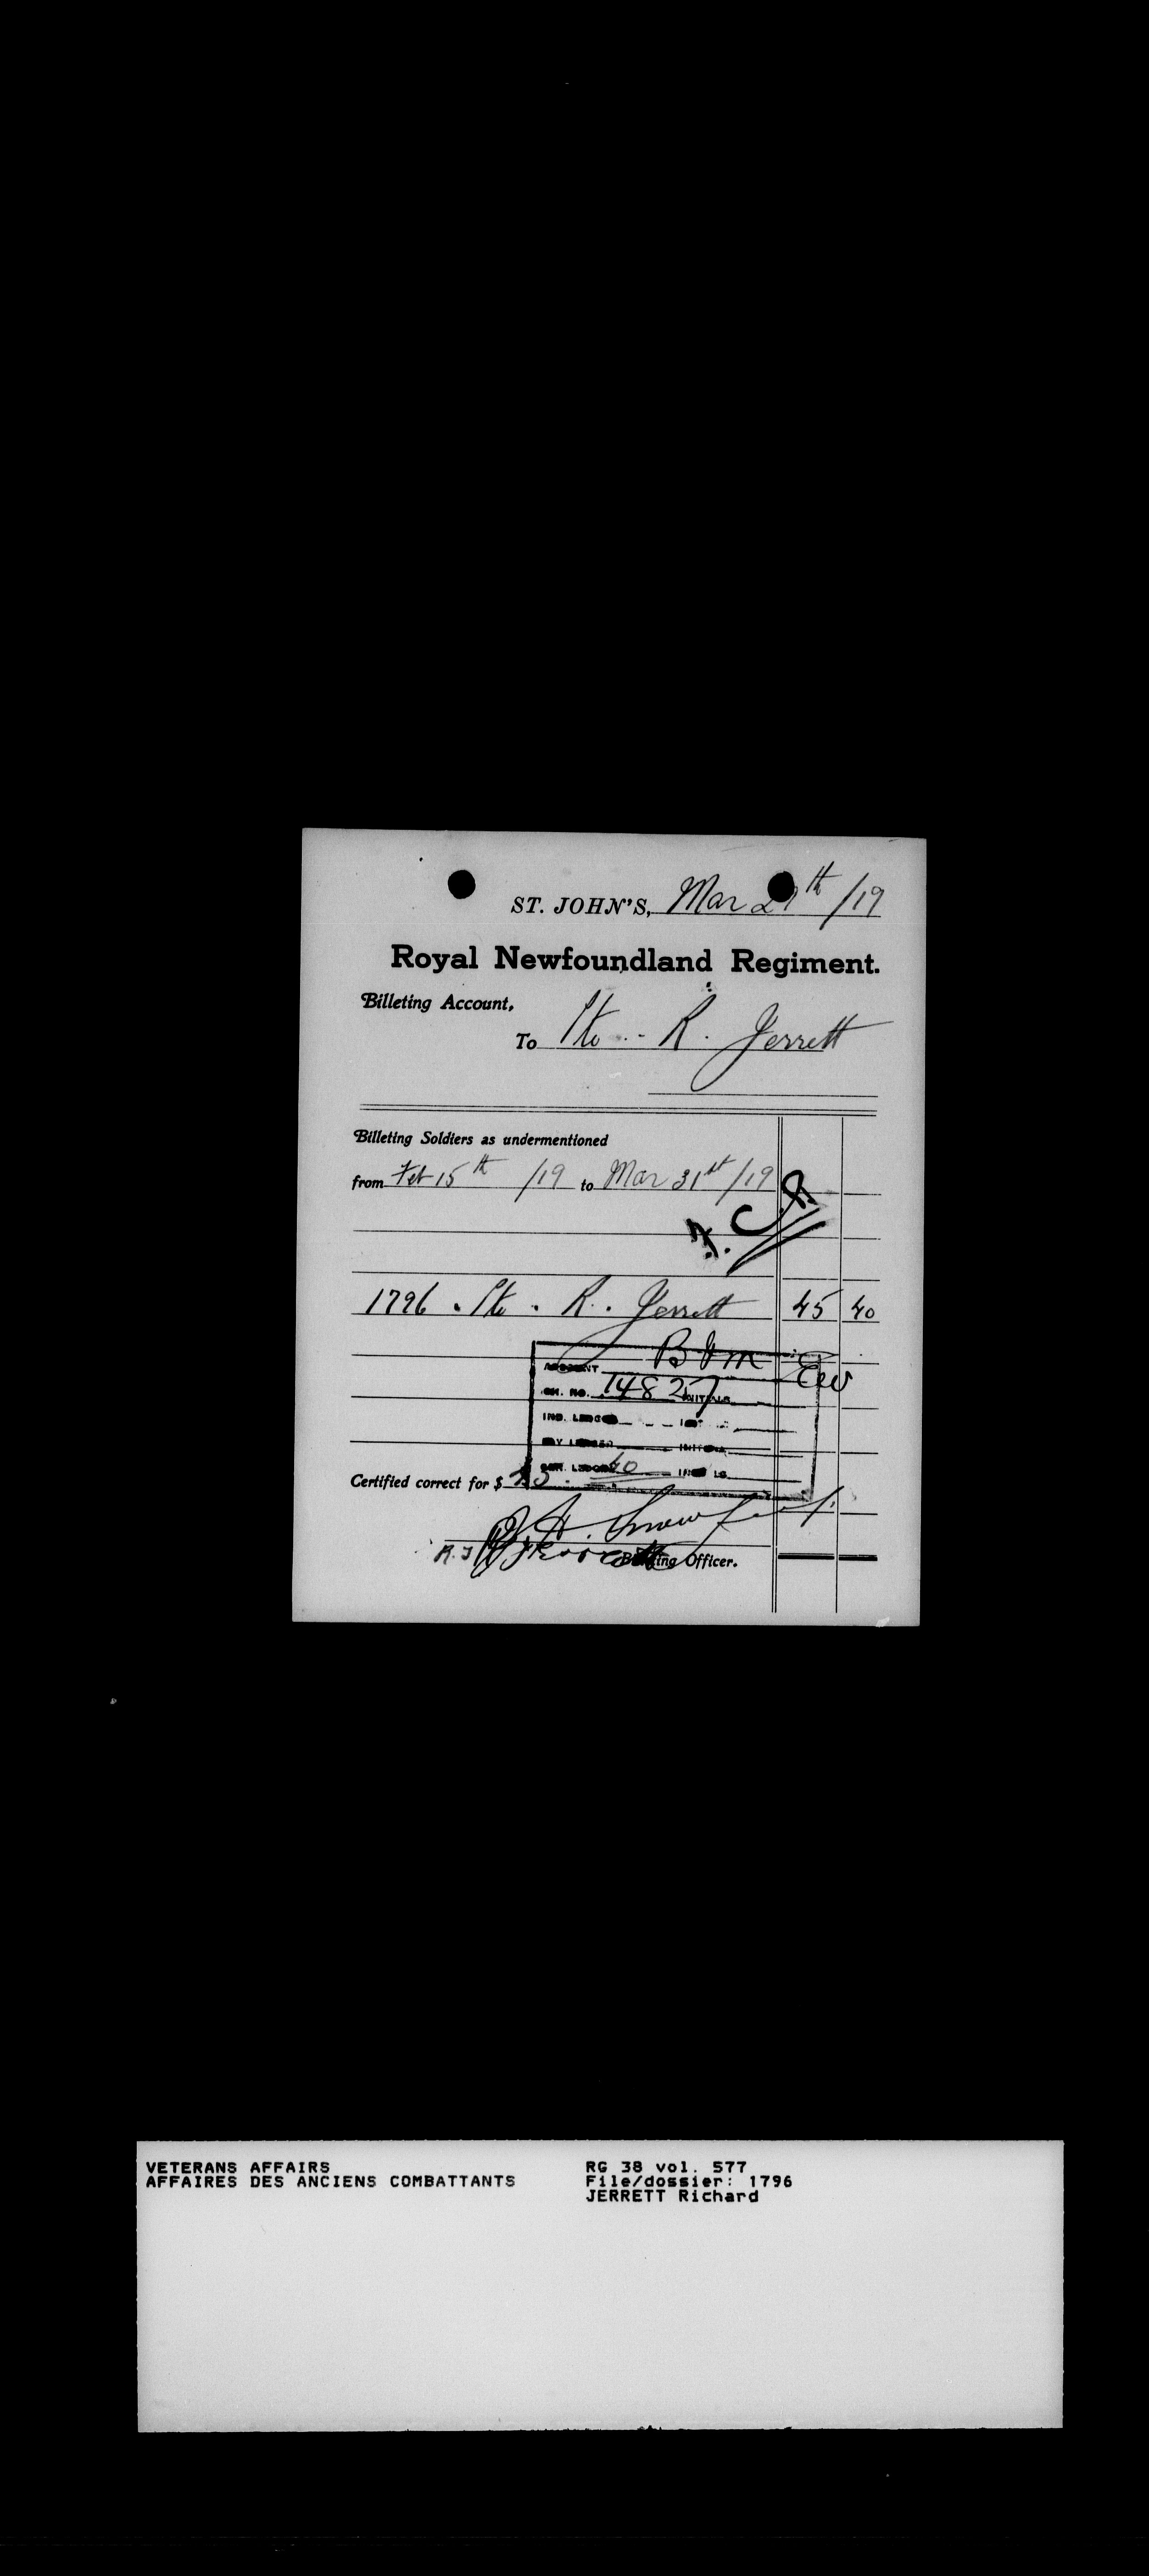 ST. JOHN'S, Mar 27th /19
Royal Newfoundland Regiment.
Billeting Account,
To Pte. R. Jerrett
Billeting Soldiers as undermentioned
from Feb 15th /19 to Mar 31st /19
1796. Pte. R. Jerrett 45 40
ACCOUNT B & M
CH. NO. 14827 INITIALS
IND. LEDGER
PAY LEDGER INITIALS
GEN. LEDGER INITIALS
Certified correct for $ 45. 40
Billeting Officer.
VETERANS AFFAIRS
AFFAIRES DES ANCIENS COMBATTANTS
RG 38 vol. 577
File/dossier: 1796
JERRETT Richard